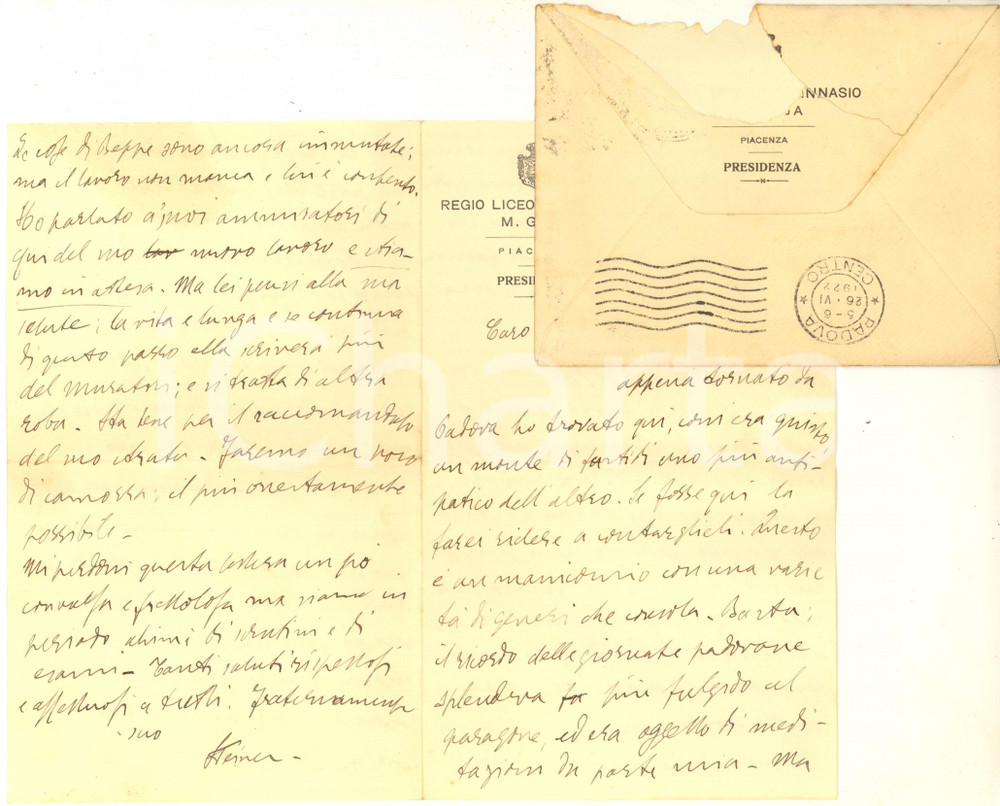 INNASIO
PIACENZA
PRESIDENZA
PADOVA CENTRO
5-6
26·VI
1922
REGIO LICEO
M. G
PIAC
PRESI
Caro
appena tornato da
Padova ho trovato qui, com'era giusto
un monte di fastidi uno più anti-
patico dell'altro. Se fosse qui la
farei ridere a contarglieli. Questo
è un manicomio con una varie
tà di generi che consola. Basta;
il ricordo delle giornate padovane
splendeva più fulgido al
paragone, ed era oggetto di medi-
tazioni da parte mia - Ma
Le cose di Beppe sono ancora immutate;
ma il lavoro non manca e lui è contento.
Ho parlato a' suoi ammiratori di
qui del suo nuovo lavoro e stia-
mo in attesa. Ma lei pensi alla sua
salute; la vita è lunga e se continua
di questo passo ella scriverà più
del Muratori; e si tratta di altra
roba. Sta bene per il raccomandato
del suo estratto. Faremo un poco
di camorra; il più onestamente
possibile -
Mi perdoni questa lettera un po'
convulsa e frettolosa ma siamo in
periodo ahimè di scrutini e di
esami - Tanti saluti rispettosi
e affettuosi a tutti. Fraternamente
suo
iCharta